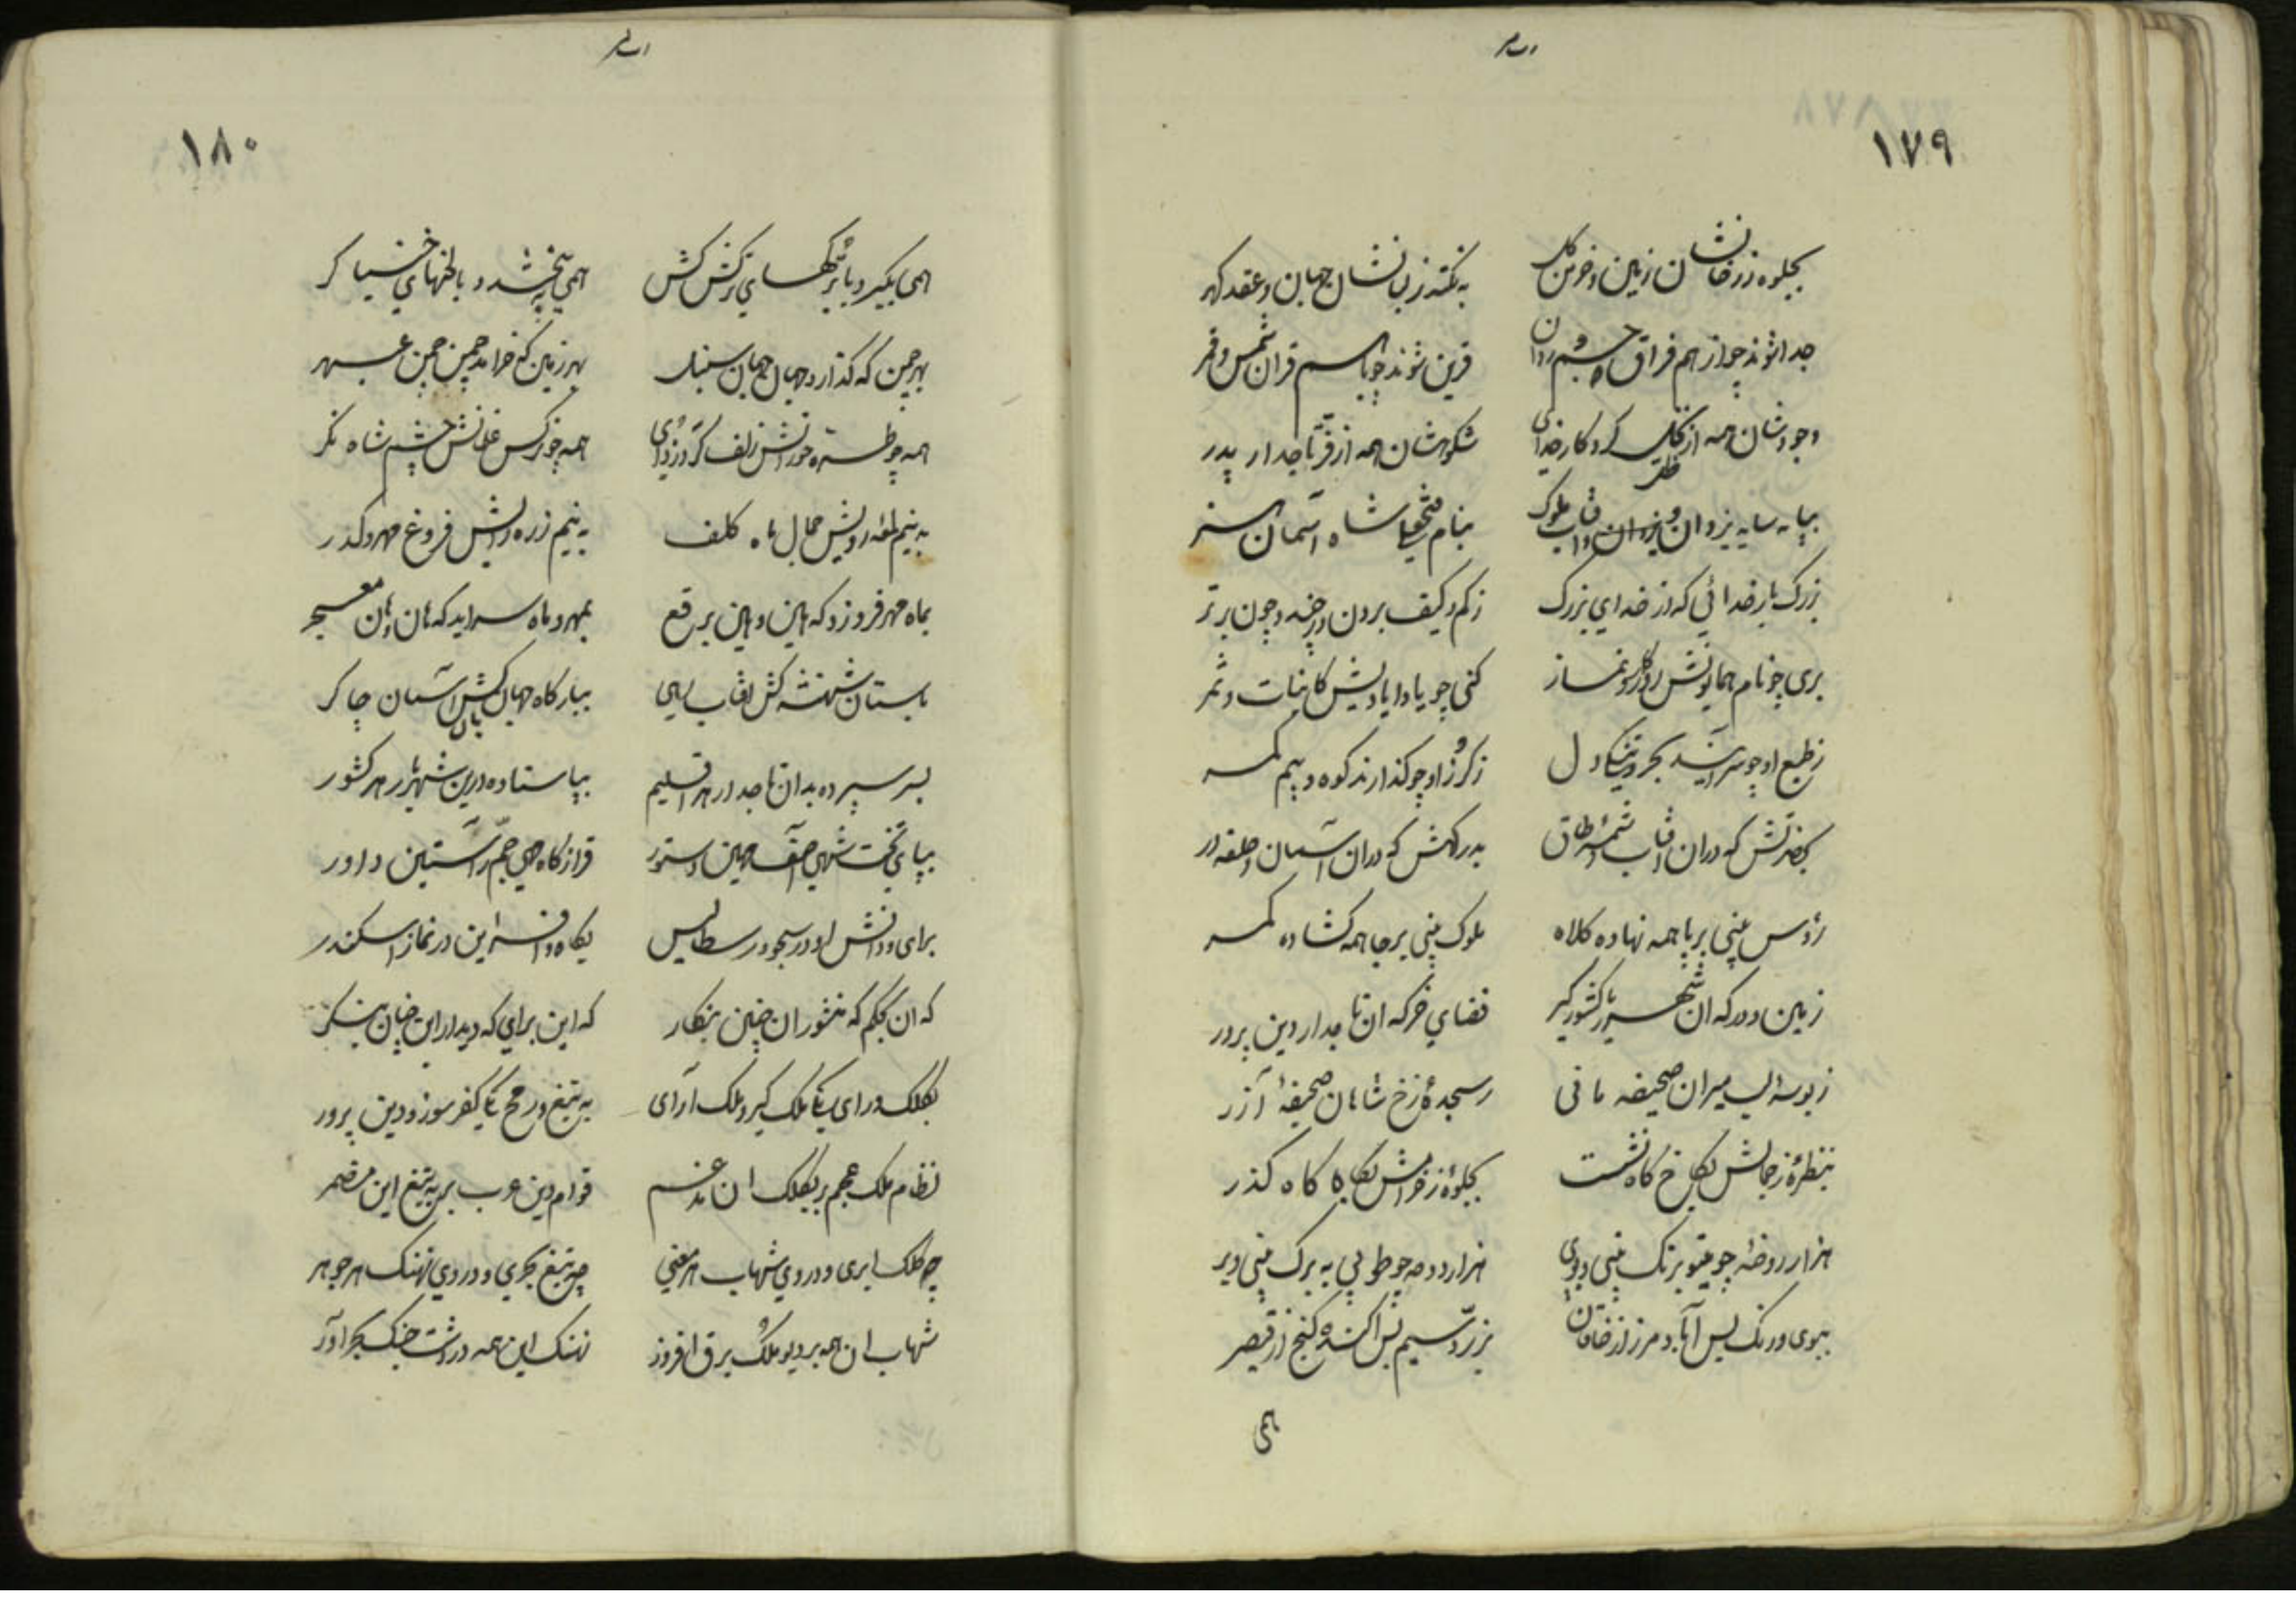 ۱۷۹
بجلوه زرخانشان زمین و خرمن گل
به نکته زبانشان جهان و عقد گهر
جدا شوند چو از هم فراق جسم و روان
قرین شوند چو باهم قران شمس و قمر
وجودشان همه از کلک کردکار خدای
شکوهشان همه از فر تاجدار پدر
بپایه سایه یزدان و ملوک
بنام فتحعلی شاه آسمان
بزرک بار خدائی که از خدای بزرک
زکم و کیف برون وز چه و چون برتر
بری چو نام همایونش روزکار نماز
کنی چو یاد ایادیش کاینات و ثمر
ز طبع او چو سرایند بحر و تنکی دل
ز کرز او چو کذارند کوه و بیم کمر
بحضرتش که دران آفتاب شمسه طاق
بدرکهش که دران آسمان و حلقه در
رؤس بینی بر پا همه نهاده کلاه
ملوک بینی بر جا همه کشاده کمر
زمین درکه ان شهریار کشورکیر
فضای خرکه ان تاجدار دین پرور
ز بوسه لب میران صحیفه مانی
ز سجدهٔ رخ شاهان صحیفهٔ آزر
بنظرهٔ ز جمالش بکاخ کاه نشست
بجلوهٔ ز خرامش بکاه کاه کذر
هزار روضه چو مینو برنک بینی و بوی
هزار دوحه چو طوبی به برک بینی و بر
ببوی و رنک بس آباد مرز از خاقان
بزر و سیم بس آکنده کنج از قیصر
همی
۱۸۰
همی بکیرد با ترکهای ترکش کش
همی ببخشد و با لختهای خنیاکر
بهر چمن که کذارد جهان جهان سنبل
بهر زمین که خرامد چمن چمن عبهر
همه چو طره حورانش زلف کرد زدای
همه چو نرکس غلمانش چشم شاه نکر
به نیم لمعه رویش جمال ماه کلف
به نیم ذره رایش فروغ مهر و کدر
بماه مهر فروزد که هین و هین برقع
بمهر و ماه سراید که هان و هان معجر
باستان شهنشه کش آفتاب رهی
ببارکاه جهانبان کش آسمان چاکر
بسر سپرده بدان تاجدار هر اقلیم
بپا ستاده درین شهریار هر کشور
بپای تخت شهی آصف مهین دستور
فراز کاه مهی جم راستین داور
برای و دانش او در سجود رسطالیس
بکاه و افسر این در نماز اسکندر
که ان بحکم که منشور ان چنین بنکار
که این برای که دیدار این چنان بنکر
بکلک و رای یکی ملک کیر و ملک آرای
به تیغ و رمح یکی کفر سوز و دین پرور
نظام ملک عجم بر بکلک ان مدغم
قوام دین عرب بر به تیغ این مضمر
چه کلک ابری و در وی شهاب هر معنی
چه تیغ بحری و در وی نهنک هر جوهر
شهاب ان همه بر دیو ملک برق افروز
نهنک این همه در دشت جنک بحر آور